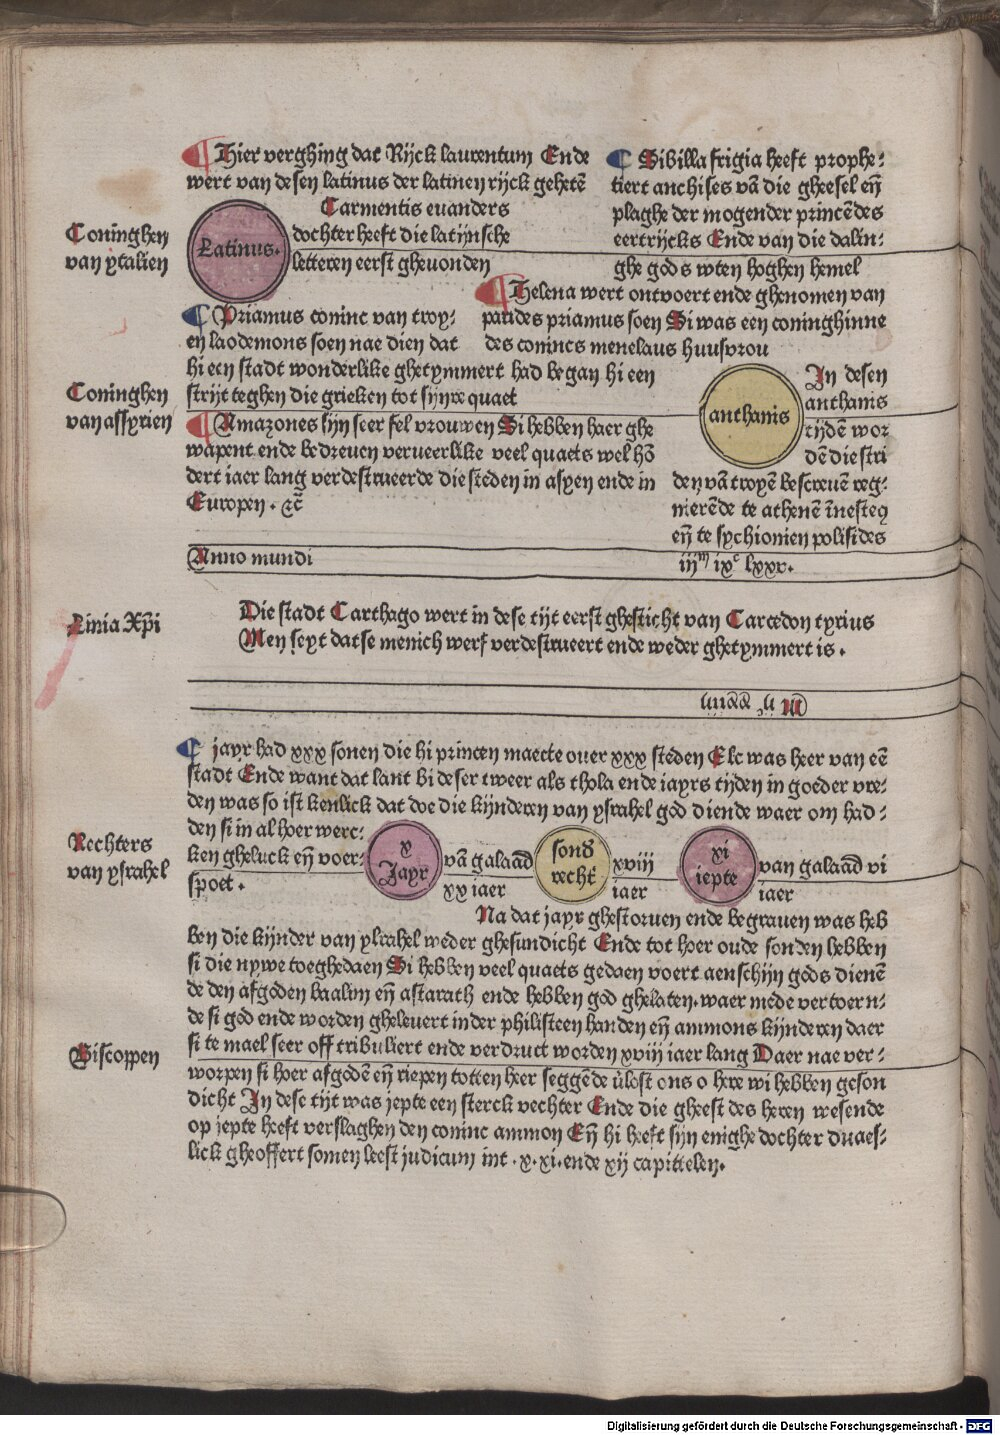 ¶ Hier verghing dat Rijck laurentum Ende
wert van desen latinus der latinen rijck gehetē
Carmentis euanders
dochter heeft die latijnsche
letteren eerst gheuonden
Coninghen
van ytalien
Latinus.
¶ Sibilla frigia heeft prophe-
tiert anchises vā die gheesel eñ
plaghe der mogender princēdes
eertrijcks Ende van die dalin-
ghe gods wten hoghen hemel
¶ Helena wert ontvoert ende ghenomen van
parides priamus soen Si was een coninghinne
des conincs menelaus huusvrou
¶ Priamus coninc van troy-
en laodemons soen nae dien dat
hi een stadt wonderlike ghetymmert had began hi een
strijt teghen die grieken tot sijnre quaet
Coninghen
van assyrien
¶ Amazones sijn seer fel vrouwen Si hebben haer ghe
wapent ende bedreuen verueerlike veel quaets wel hō
dert iaer lang verdestrueerde die steden in asyen ende in
Europen. ⁊c̄
anthanis
In desen
anthanis
tijdē wor
dē die stri
den vā troyē bescreuē reg-
nierēde te athenē īnesteq
eñ te sychionien polisides
Anno mundi
iijᵐ ixᶜ lxxx.
Linia Xp̄i
Die stadt Carthago wert in dese tijt eerst ghesticht van Carcedon tyrius
Men seyt datse menich werf verdestrueert ende weder ghetymmert is.
¶ jayr had xxx sonen die hi princen maecte ouer xxx steden Elc was heer van eē
stadt Ende want dat lant bi deser tweer als thola ende iayrs tyden in goeder vre-
den was so ist kenlick dat doe die kijnderen van ysrahel god diende waer om had-
den si in al hoer werc-
ken gheluck eñ voer-
spoet.
Rechters
van ysrahel
x
Jayr
vā galaad
xx iaer
sond
recht
xviij
iaer
xi
iepte
van galaad vi
iaer
Na dat jayr ghestoruen ende begrauen was heb
ben die kijnder van ysrahel weder ghesundicht Ende tot hoer oude sonden hebben
si die nywe toeghedaen Si hebben veel quaets gedaen voert aenschijn gods dienē
de den afgoden baalim eñ astarath ende hebben god ghelaten. waer mede vertoern-
de si god ende worden gheleuert in der philisteen handen eñ ammons kijnderen daer
si te mael seer off tribuliert ende verdruct worden xviij iaer lang Daer nae ver-
worpen si hoer afgodē eñ riepen totten heer seggēde v̇lost ons o here wi hebben geson
dicht In dese tijt was jepte een sterck vechter Ende die gheest des heren wesende
op jepte heeft verslaghen den coninc ammon Eñ hi heeft sijn enighe dochter duaes-
lick gheoffert somen leest judicum int .x. xi. ende xij capittelen.
Biscoppen
Digitalisierung gefördert durch die Deutsche Forschungsgemeinschaft - DFG